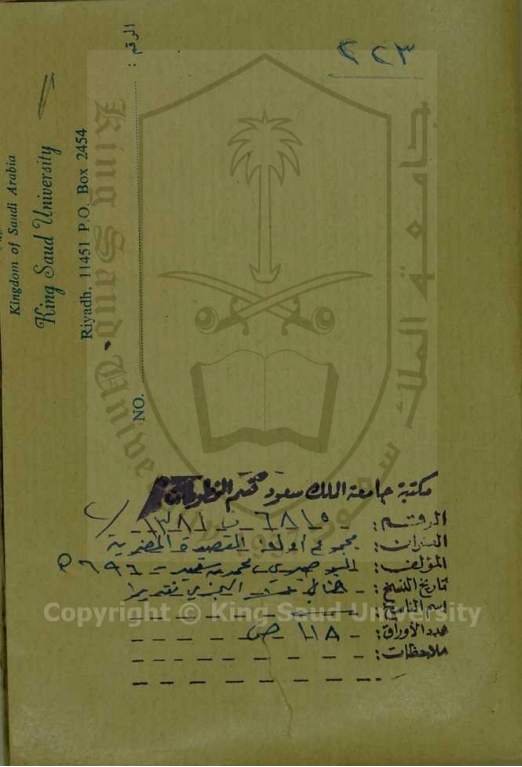 ٢٢٣
Kingdom of Saudi Arabia
King Saud University
Riyadh, 11451 P.O. Box 2454
الرقم :
NO.
King Saud Unive
جامعة الملك سعود
مكتبة جامعة الملك سعود قسم المخطوطات
الرقم: ٦٨١٥
العنوان: مجموع أوله: القصيدة المضرية
المؤلف: البوصيري، محمد بن سعيد - ٦٩٦
تاريخ النسخ:
اسم الناسخ:
عدد الأوراق: ١١٨ ص
ملاحظات:
Copyright © King Saud University